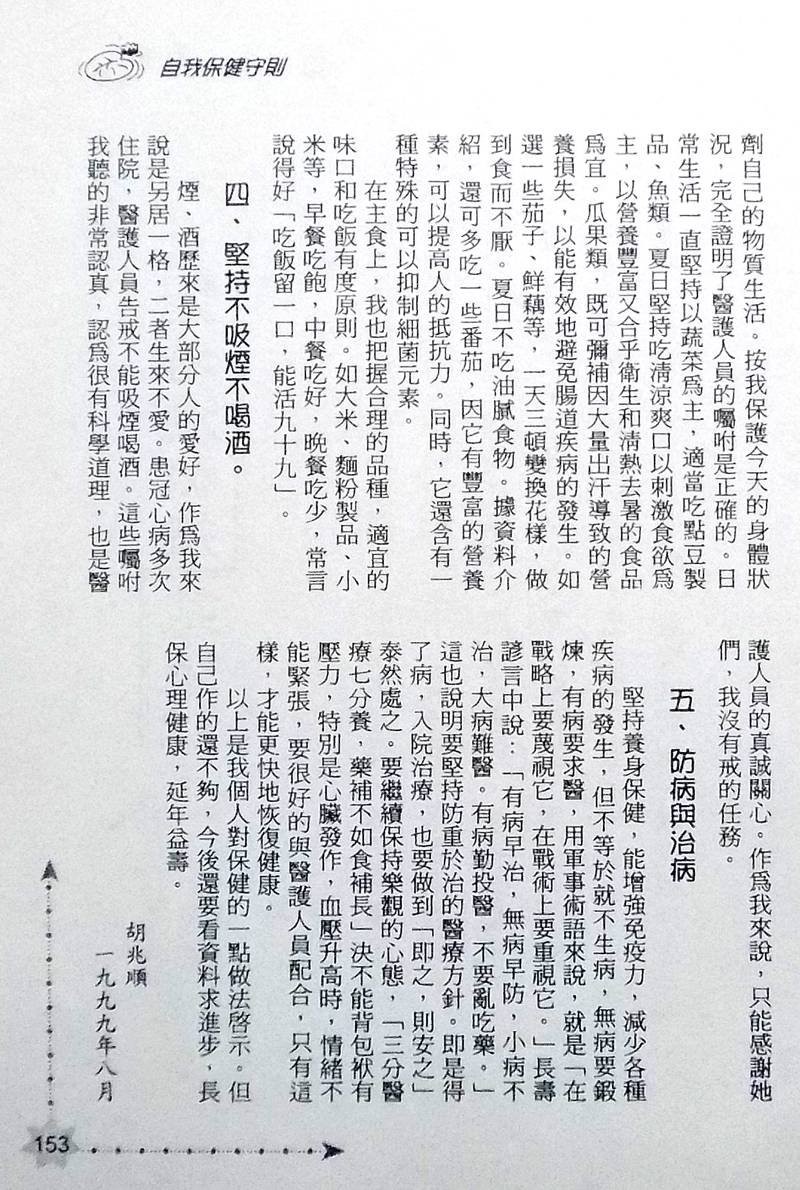 自我保健守則
劑自己的物質生活。按我保護今天的身體狀
況，完全證明了醫護人員的囑咐是正確的。日
常生活一直堅持以蔬菜爲主，適當吃點豆製
品、魚類。夏日堅持吃清涼爽口以刺激食欲爲
主，以營養豐富又合乎衛生和清熱去暑的食品
爲宜。瓜果類，既可彌補因大量出汗導致的營
養損失，以能有效地避免腸道疾病的發生。如
選一些茄子、鮮藕等，一天三頓變換花樣，做
到食而不厭。夏日不吃油膩食物。據資料介
紹，還可多吃一些番茄，因它有豐富的營養
素，可以提高人的抵抗力。同時，它還含有一
種特殊的可以抑制細菌元素。
在主食上，我也把握合理的品種，適宜的
味口和吃飯有度原則。如大米、麵粉製品、小
米等，早餐吃飽，中餐吃好，晚餐吃少，常言
說得好「吃飯留一口，能活九十九」。
四、堅持不吸煙不喝酒。
煙、酒歷來是大部分人的愛好，作爲我來
說是另居一格，二者生來不愛。患冠心病多次
住院，醫護人員告戒不能吸煙喝酒。這些囑咐
我聽的非常認真，認爲很有科學道理，也是醫
護人員的真誠關心。作爲我來說，只能感謝她
們，我沒有戒的任務。
五、防病與治病
堅持養身保健，能增強免疫力，減少各種
疾病的發生，但不等於就不生病，無病要鍛
煉，有病要求醫，用軍事術語來說，就是「在
戰略上要蔑視它，在戰術上要重視它。」長壽
諺言中說：「有病早治，無病早防，小病不
治，大病難醫。有病勤投醫，不要亂吃藥。」
這也說明要堅持防重於治的醫療方針。即是得
了病，入院治療，也要做到「即之，則安之」
泰然處之。要繼續保持樂觀的心態，「三分醫
療七分養，藥補不如食補長」決不能背包袱有
壓力，特別是心臟發作，血壓升高時，情緒不
能緊張，要很好的與醫護人員配合，只有這
樣，才能更快地恢復健康。
以上是我個人對保健的一點做法啓示。但
自己作的還不夠，今後還要看資料求進步，長
保心理健康，延年益壽。
胡兆順
一九九九年八月
153